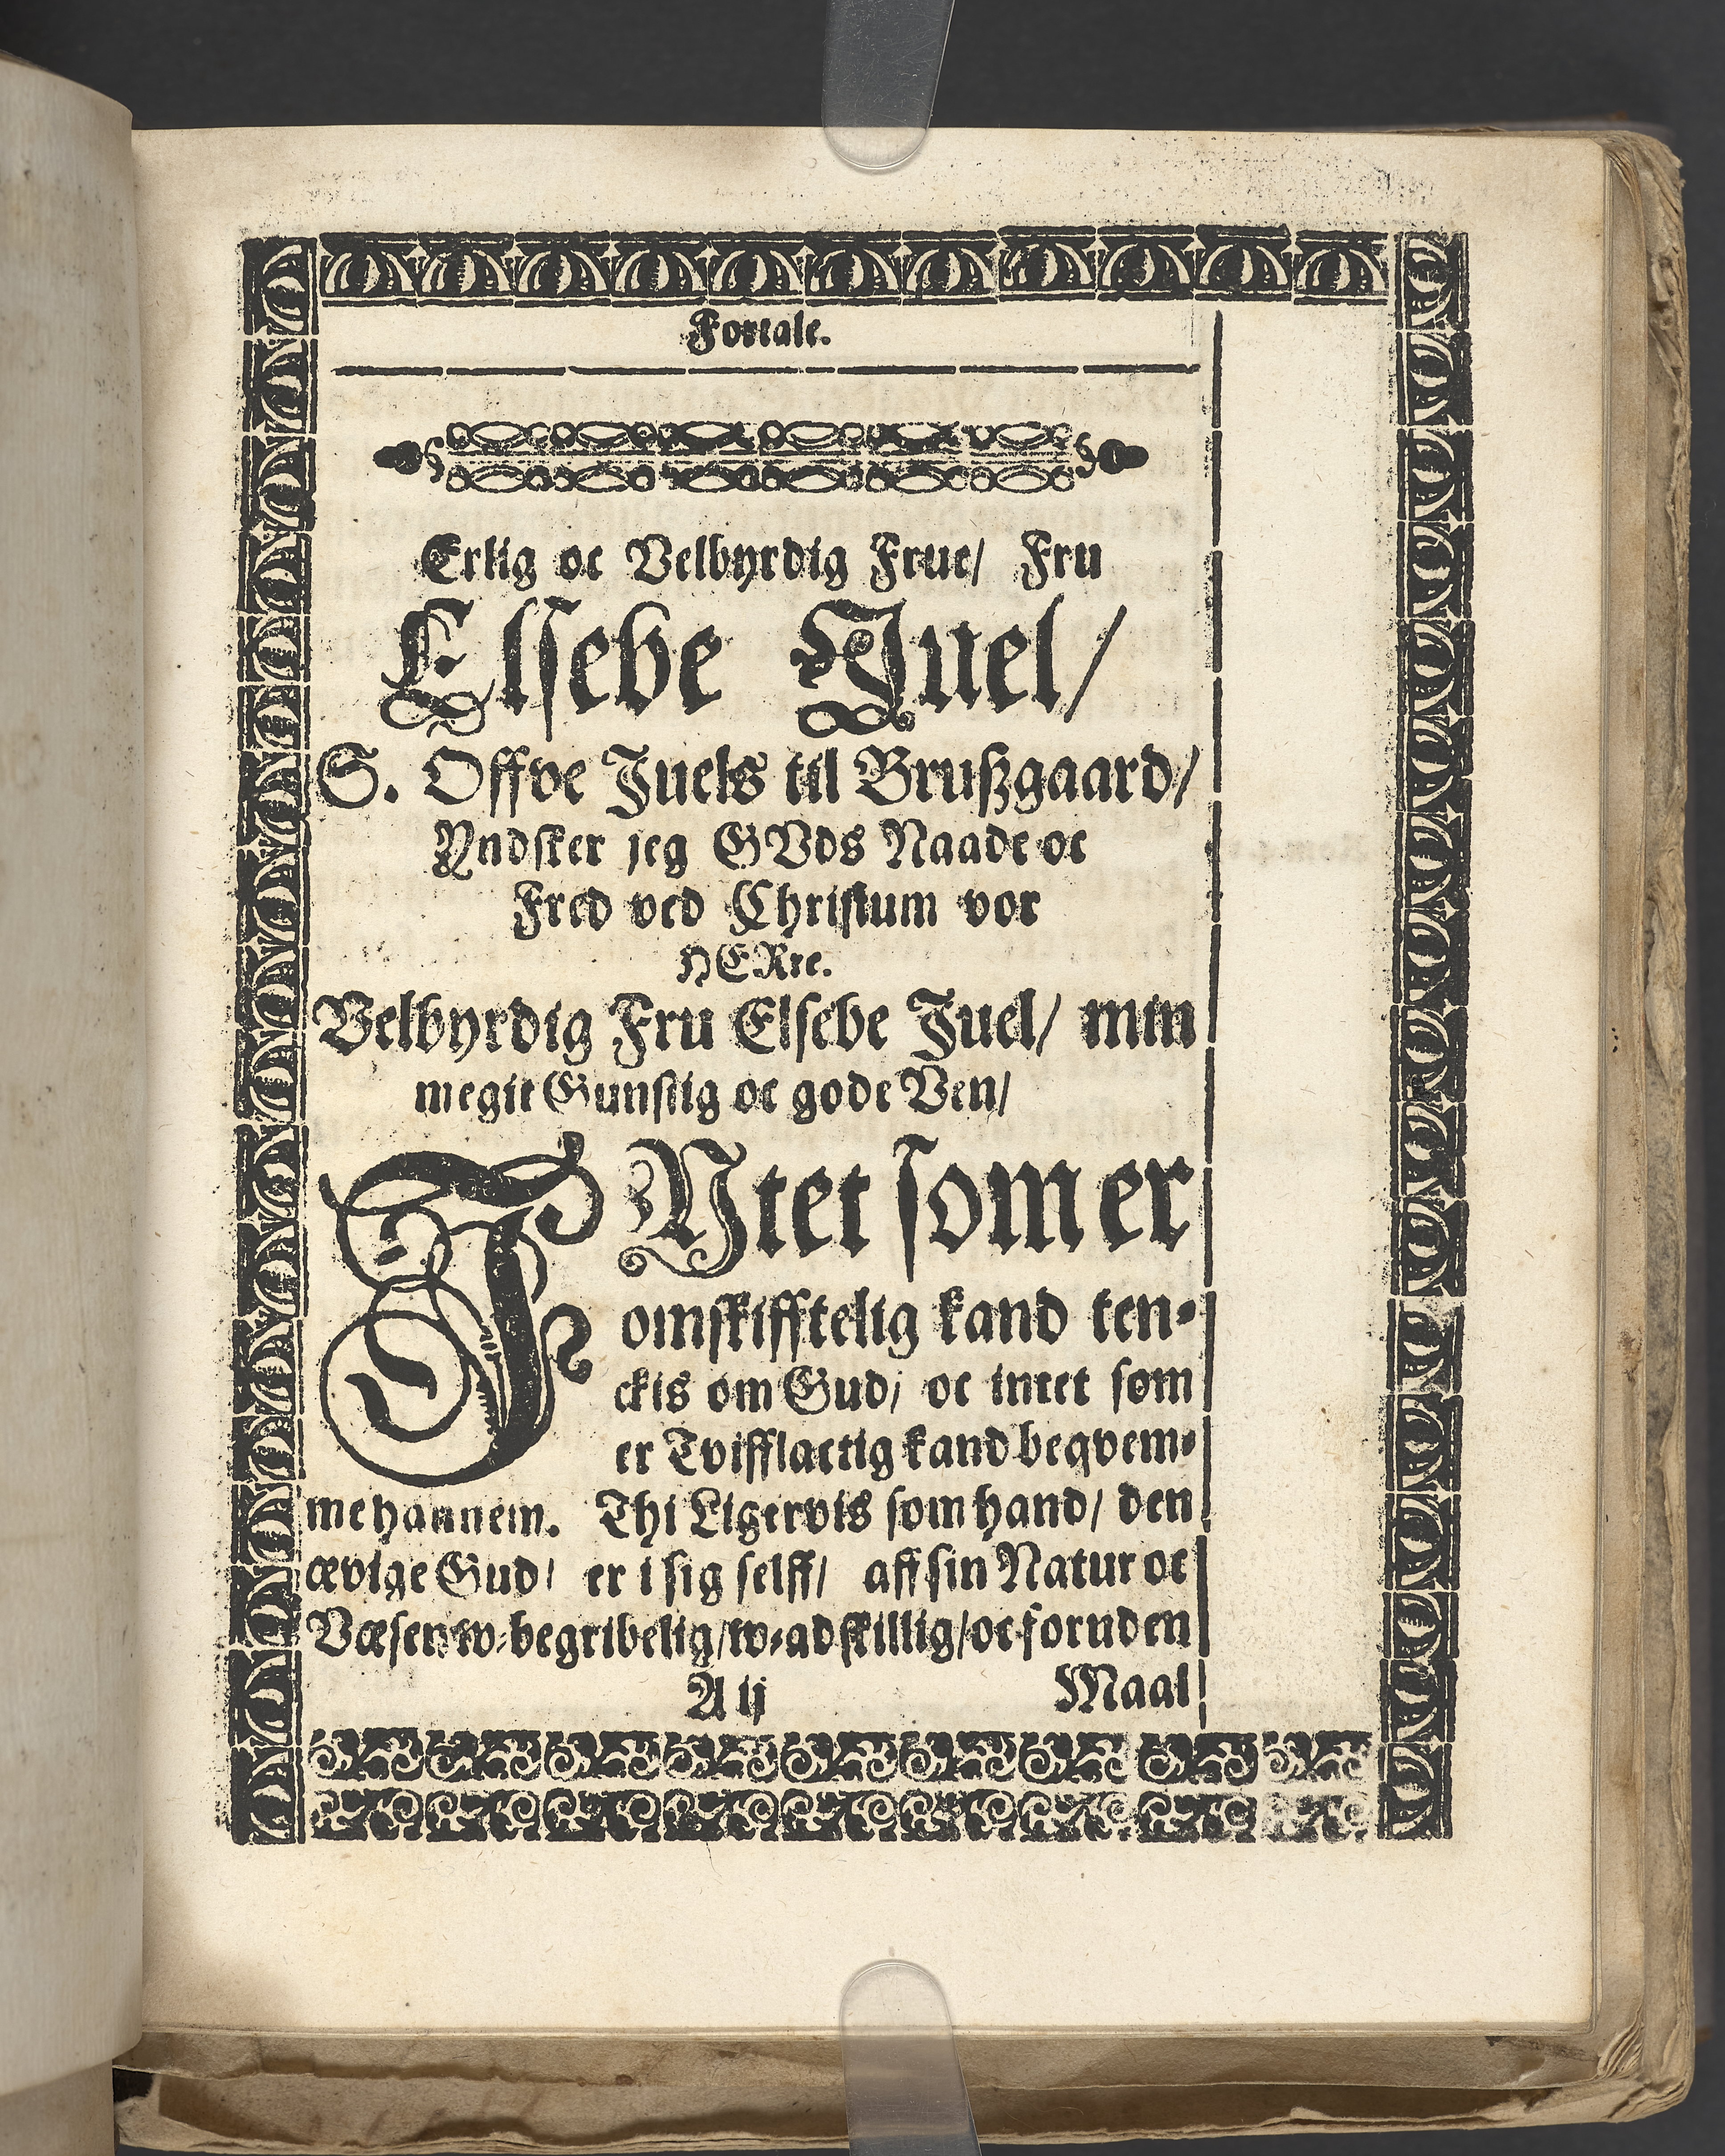 Fortale.
Erlig oc Velbyrdig Frue/ Fru
Elsebe Juel/
S. Offve Juels til Brußgaard/
Yndsker jeg GVds Naade oc
Fred ved Christum vor
HERre.
Velbyrdig Fru Elsebe Juel/ min
megit Gunstig oc gode Ven/
INtet som er
omskifftelig kand ten-
ckis om Gud/ oc intet som
er Tvifflactig kand beqvem-
me hannem. Thi Ligervis som hand/ den
ævige Gud/ er i sig selff/ aff sin Natur oc
Væsen w-begribelig/ w-adskillig/ oc foruden
A ij
Maal